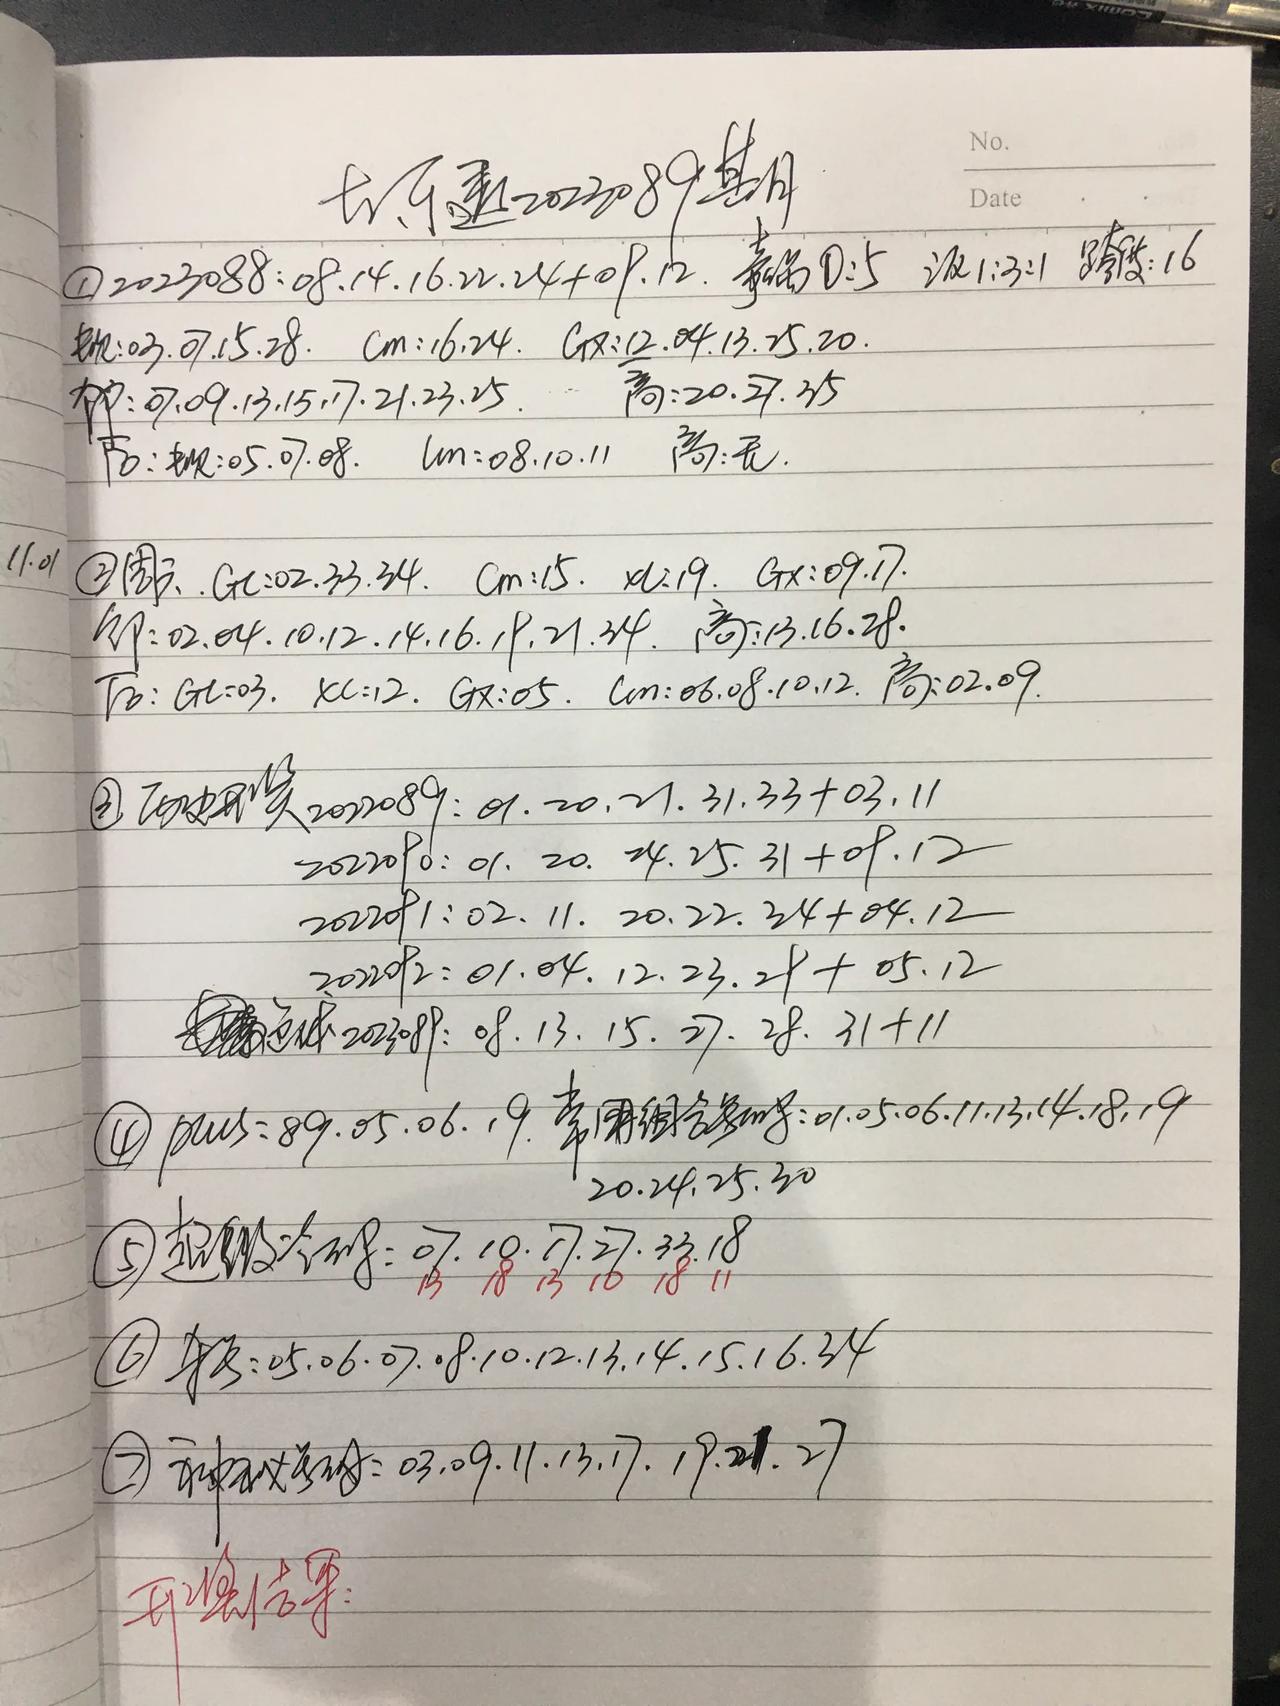 No.
Date
大乐透2023089期
①2023088:08.14.16.22.24+09.12. 奇偶①:5 区1:3:1 跨度:16
03.07.15.28. Cm:16.24. GX:12.04.13.25.20.
07.09.13.15.17.21.23.25. 高:20.27.35
后: 05.07.08. Cm:08.10.11 高:无.
11.01
② GL:02.33.34. Cm:15. XL:19. GX:09.17.
邻:02.04.10.12.14.16.19.21.34. 高:13.16.28.
后: GL:03. XL:12. GX:05. Cm:06.08.10.12. 高:02.09.
③ 历史开奖2022089:01.20.21.31.33+03.11
2022090:01.20.24.25.31+09.12
2022091:02.11.20.22.34+04.12
2022092:01.04.12.23.29+05.12
2023089:08.13.15.27.28.31+11
④ plus:89.05.06.19. 常用组合号码:01.05.06.11.13.14.18.19
20.24.25.30
⑤ 超级冷码:07.10.17.27.33.18
13 18 13 10 18 11
⑥ :05.06.07.08.10.12.13.14.15.16.34
⑦ 神秘号码:03.09.11.13.17.19.21.27
开奖结果: